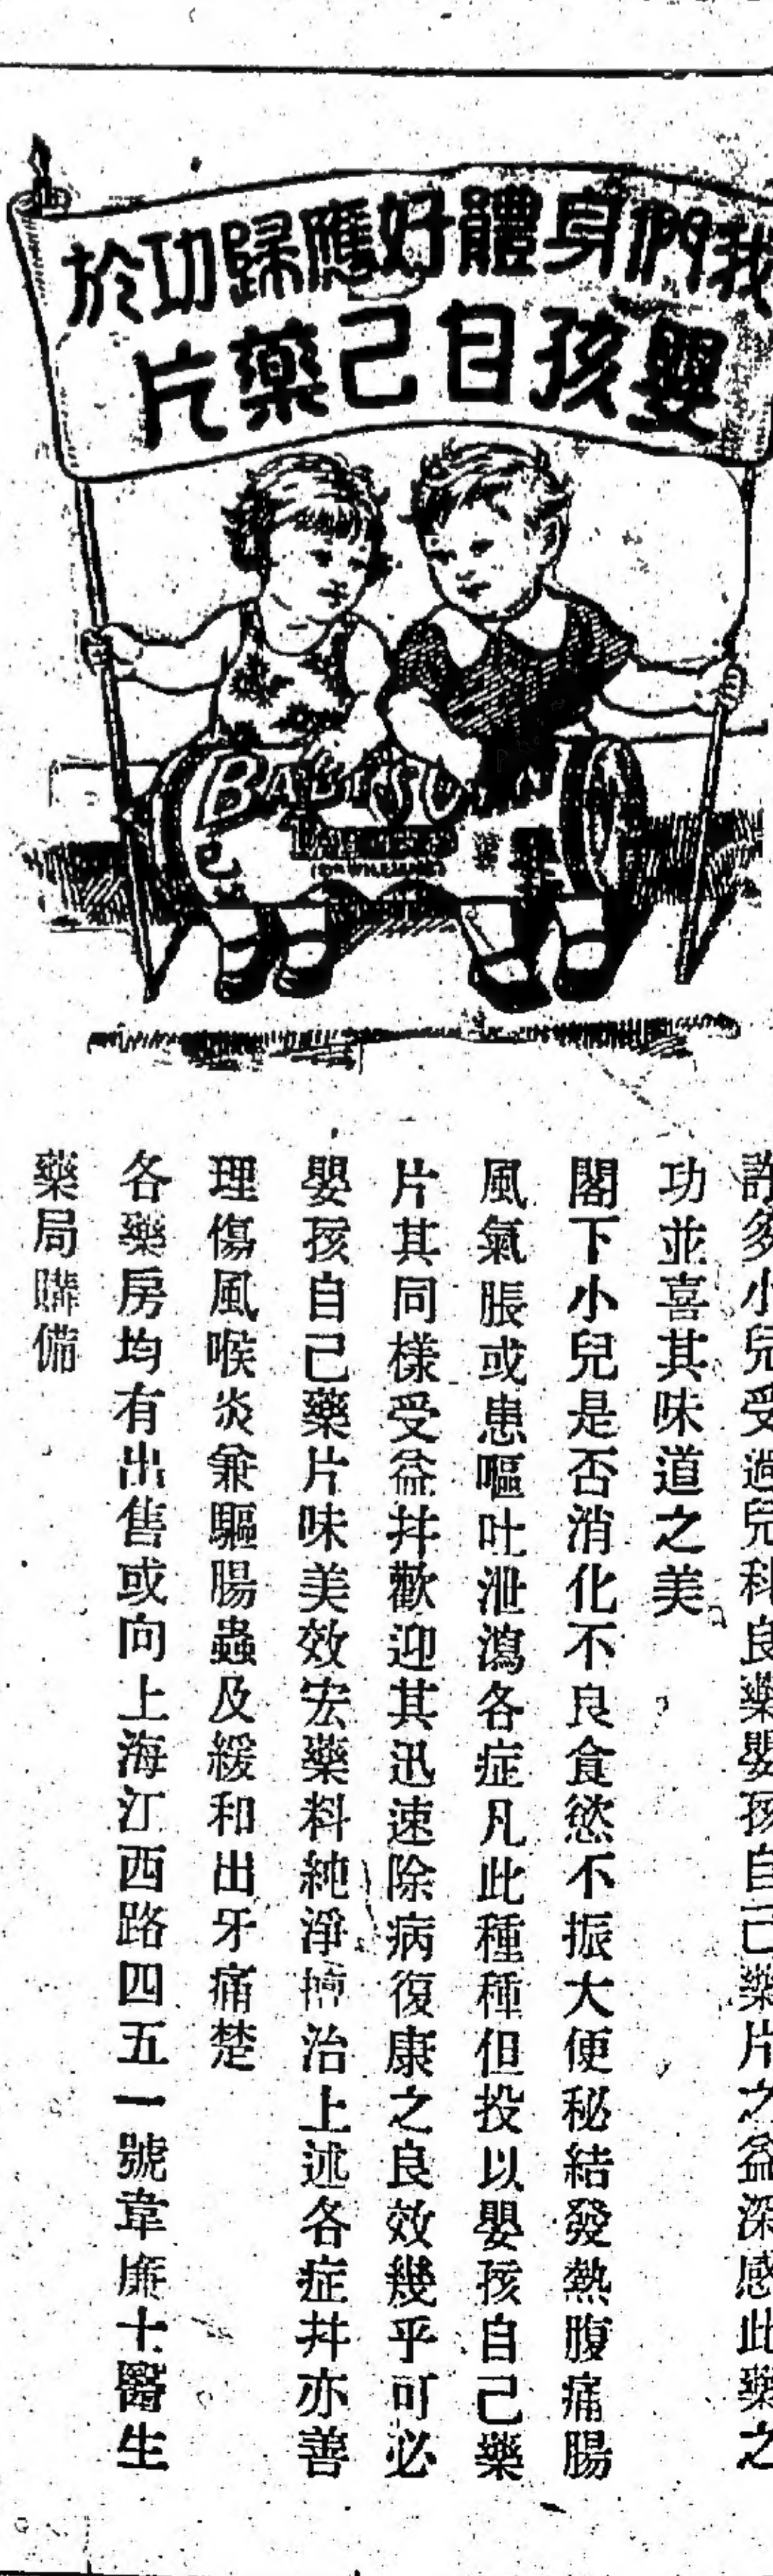 我們身體好應歸功於
嬰孩自己藥片
BABY'S OWN
TABLETS
許多小兒受過兒科良藥嬰孩自己藥片之益深感此藥之
功並喜其味道之美
閣下小兒是否消化不良食慾不振大便秘結發熱腹痛腸
風氣脹或患嘔吐泄瀉各症凡此種種但投以嬰孩自己藥
片其同樣受益幷歡迎其迅速除病復康之良效幾乎可必
嬰孩自己藥片味美效宏藥料純淨擅治上述各症幷亦善
理傷風喉炎兼驅腸蟲及緩和出牙痛楚
各藥房均有出售或向上海江西路四五一號韋廉士醫生
藥局購備